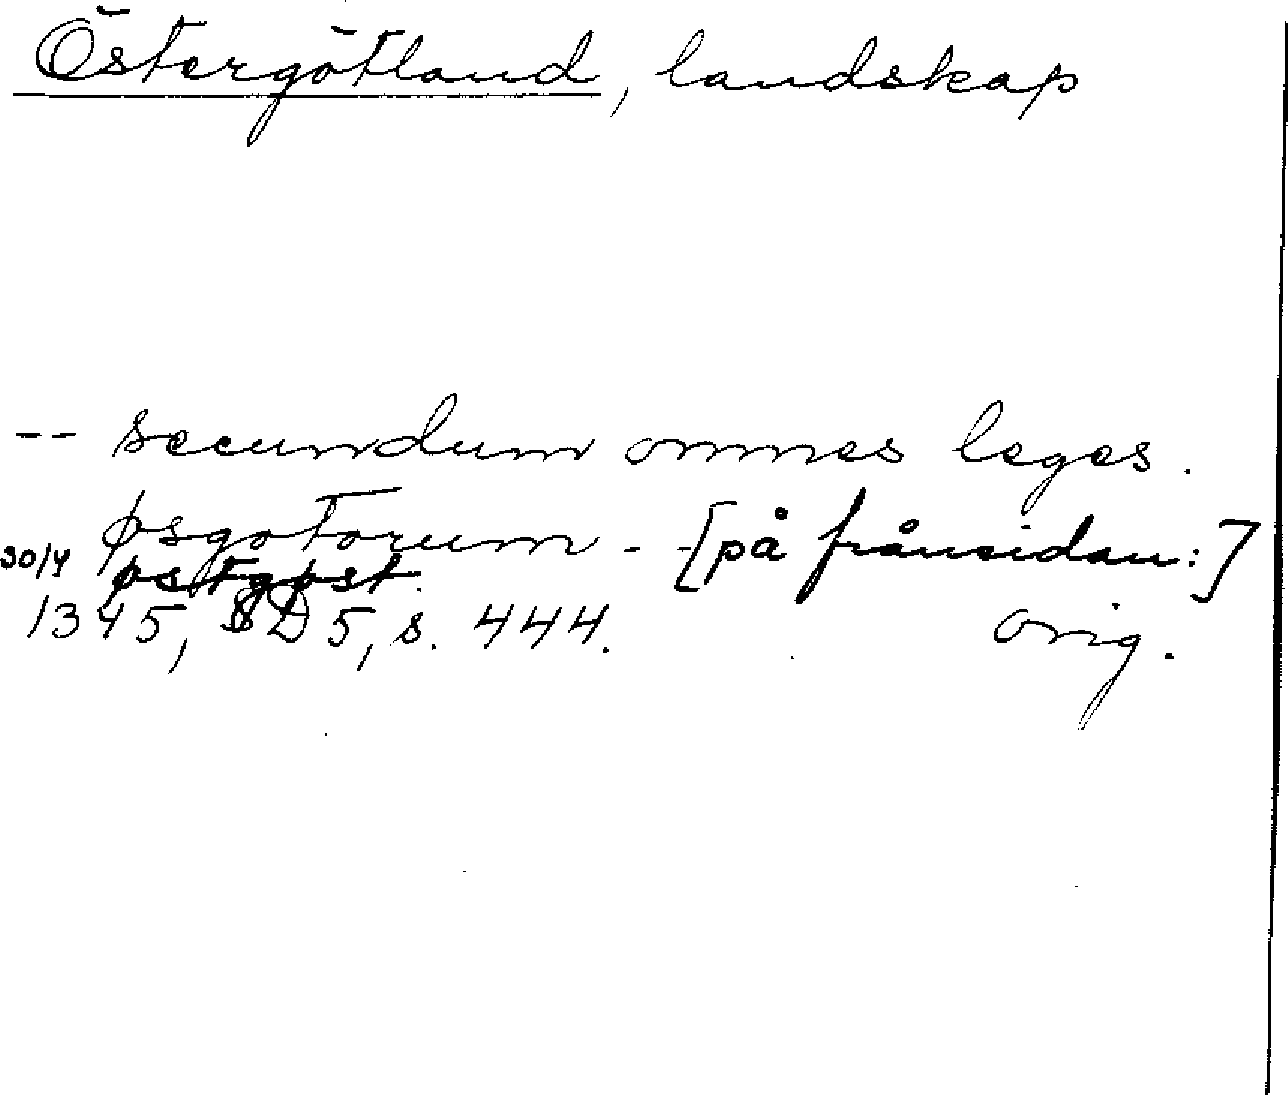 Östergötland, landskap
-- secundum omnes leges.
øsgotorum - - [på frånsidan:]
30/4 østgøst.
1345, SD 5, s. 444. orig.